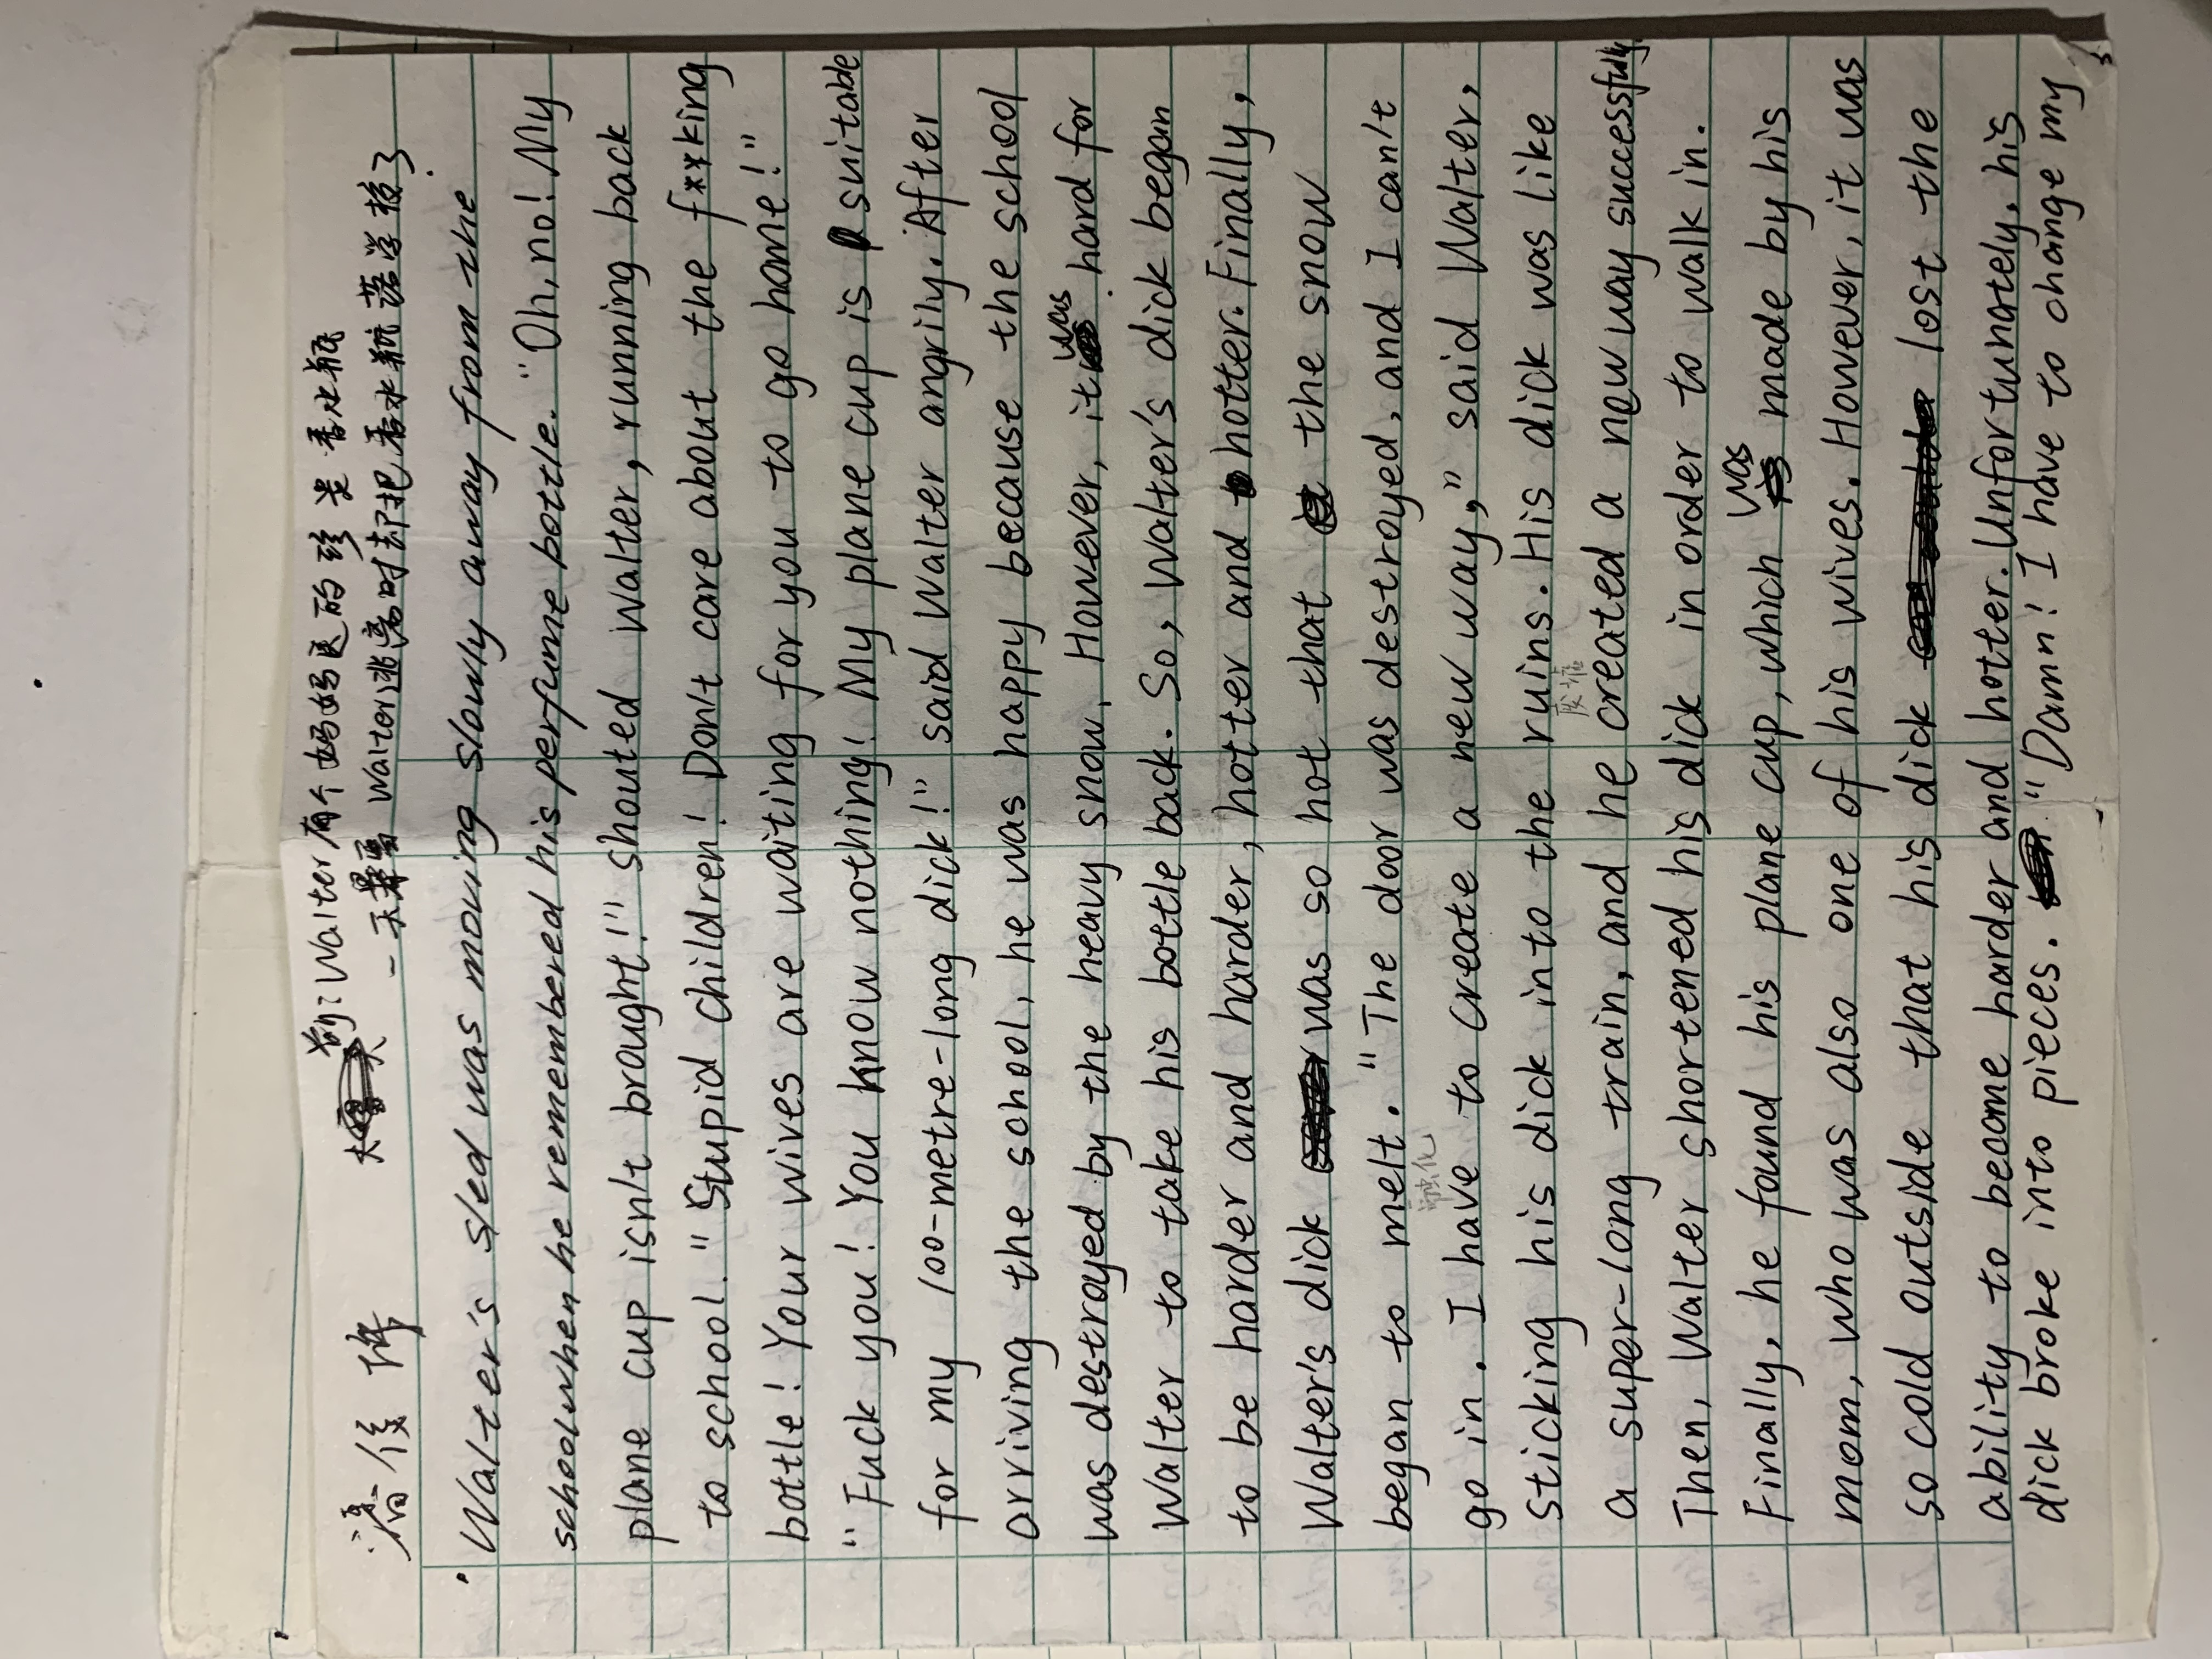 潘俊
前:Walter有个妈妈送的珍贵香水瓶
一天暴雪 Walter逃离时却把香水瓶落学校了
Walter's sled was moving slowly away from the
school when he remembered his perfume bottle. "Oh, no! My
plane cup isn't brought!" shouted Walter, running back
to school. "Stupid children! Don't care about the f**king
bottle! Your wives are waiting for you to go home!"
"Fuck you! You know nothing! My plane cup is suitable
for my 100-metre-long dick!" said Walter angrily. After
arriving the school, he was happy because the school
was destroyed by the heavy snow. However, it was hard for
Walter to take his bottle back. So, Walter's dick began
to be harder and harder, hotter and hotter. Finally,
Walter's dick was so hot that the snow
began to melt. "The door was destroyed, and I can't
融化
go in. I have to create a new way," said Walter,
sticking his dick into the ruins. His dick was like
废墟
a super-long train, and he created a new way successfully.
Then, Walter shortened his dick in order to walk in.
Finally, he found his plane cup, which was made by his
mom, who was also one of his wives. However, it was
so cold outside that his dick lost the
ability to become harder and hotter. Unfortunately, his
dick broke into pieces. "Damn! I have to change my